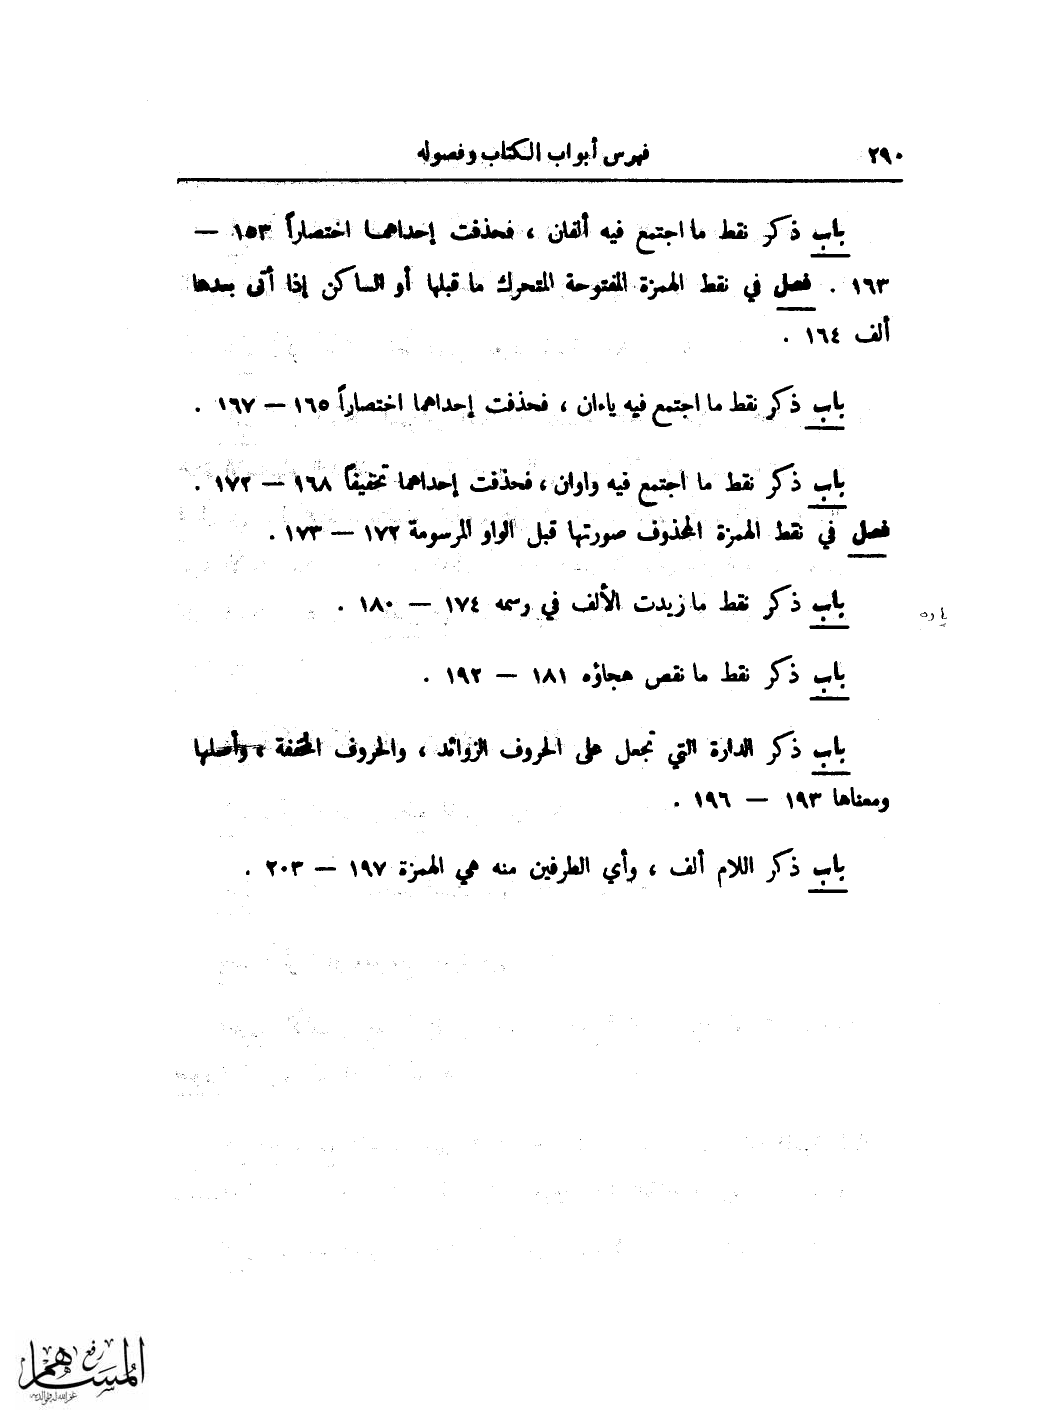 ٢٩٠ فهرس أبواب الكتاب وفصوله
باب ذكر نقط ما اجتمع فيه ألفان ، فحذفت إحداهما اختصاراً ١٥٣ —
١٦٣ . فصل في نقط الهمزة المفتوحة المتحرك ما قبلها أو الساكن إذا أتى بعدها
ألف ١٦٤ .
باب ذكر نقط ما اجتمع فيه ياءان ، فحذفت إحداهما اختصاراً ١٦٥ — ١٦٧ .
باب ذكر نقط ما اجتمع فيه واوان ، فحذفت إحداهما تخفيفاً ١٦٨ — ١٧٢ .
فصل في نقط الهمزة المحذوف صورتها قبل الواو المرسومة ١٧٢ — ١٧٣ .
باب ذكر نقط ما زيدت الألف في رسمه ١٧٤ — ١٨٠ .
باب ذكر نقط ما نقص هجاؤه ١٨١ — ١٩٢ .
باب ذكر الدارة التي تجعل على الحروف الزوائد ، والحروف المخففة ، وأصلها
ومعناها ١٩٣ — ١٩٦ .
باب ذكر اللام ألف ، وأي الطرفين منه هي الهمزة ١٩٧ — ٢٠٣ .
رفع
المساهم
غفر الله له ولوالديه